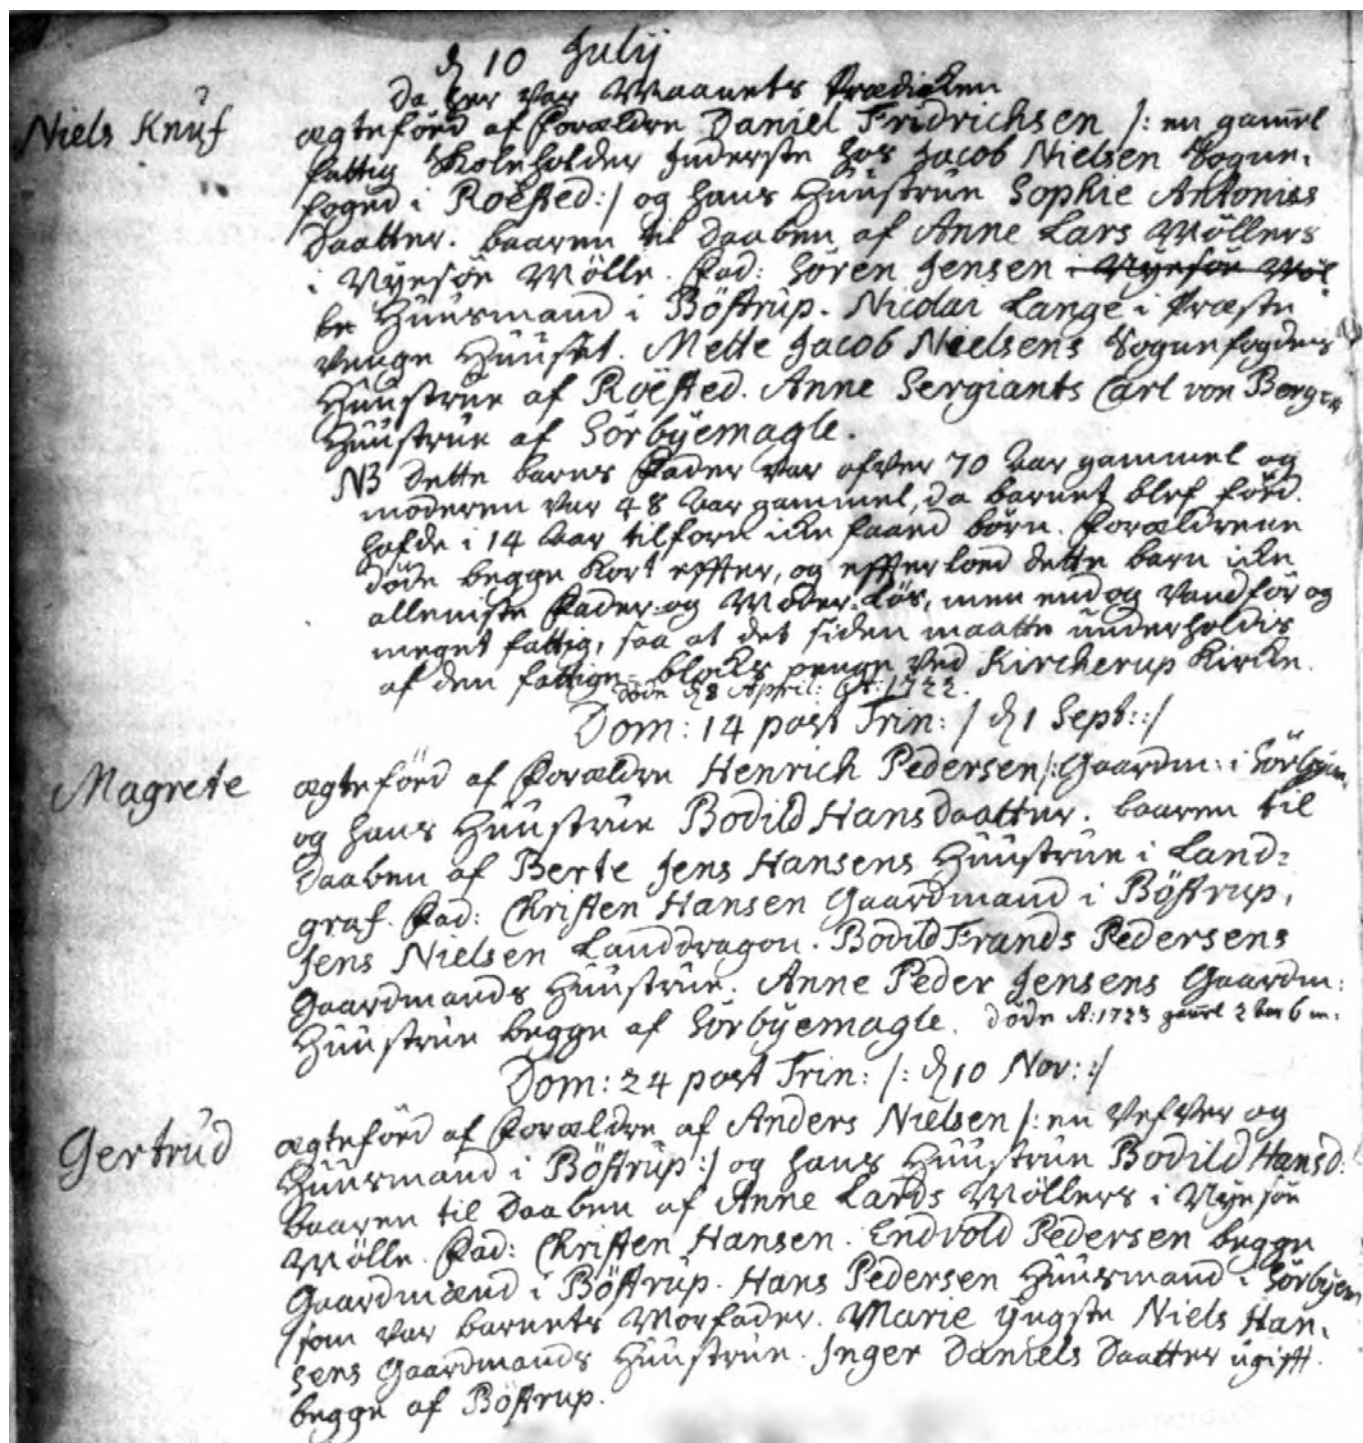 d 10 Julij
Da her var Maanets Prædicken
Niels Knuf ægteförd af Forældre Daniel Fridrichsen /: en gam̄el
fattig Skoleholder Inderste hos Jacob Nielsen Sogne-
foged i Roësted :/ og hans Huustrue Sophie Antonies
Daatter. baaren til Daaben af Anne Lars Möllers
i Nyesöe Mölle. Fad: Sören Jensen i Nyesöe Möl
be Huusmand i Böstrup. Nicolai Lange i Præste
venge Huuset. Mette Jacob Nielsens Sognefogders
Huustrue af Roësted. Anne Sergiants Carl von Bergen
Huustrue af Sörbÿemagle.
NB dette barns Fader var ofver 70 Aar gammel og
moderen var 48 Aar gammel, da barnet blef förd.
hafde i 14 Aar tilforn icke faaed börn. Forældrene
döde begge kort effter, og effterloed dette barn icke
alleniste Fader- og Moder-Lös, men end og vandför og
meget fattig, saa at det siden maatte underholdis
af den fattige-blocks penge ved Kircherup Kircke.
döde d 8 April: A: 1722.
Dom: 14 post Trin: /: d 1 Sept: :/
Magrete ægteförd af Forældre Henrich Pedersen /: Gaardm: i Sörbyem
og hans Huustrue Bodild Hansdaatter. baaren til
Daaben af Berte Jens Hansens Huustrue i Land-
graf. Fad: Christen Hansen Gaardmand i Böstrup,
Jens Nielsen Landdragon. Bodild Frands Pedersens
Gaardmands Huustrue. Anne Peder Jensens Gaardm:
Huustrue begge af Sörbyemagle. döde A: 1723 gam̄el 2 Aar 6 m:
Dom: 24 post Trin: /: d 10 Nov: :/
Gertrud ægteförd af Forældre af Anders Nielsen /: en Vefver og
Huusmand i Böstrup :/ og hans Huustrue Bodild Hansd:
Baaren til Daaben af Anne Lards Möllers i Nyesöe
Mölle. Fad: Christen Hansen. Endvold Pedersen begge
Gaardmænd i Böstrup. Hans Pedersen Huusmand i Sörbyem
som var barnets Morfader. Marie Yngste Niels Han-
sens Gaardmands Huustrue. Inger Daniels Daatter ugifft.
begge af Böstrup.